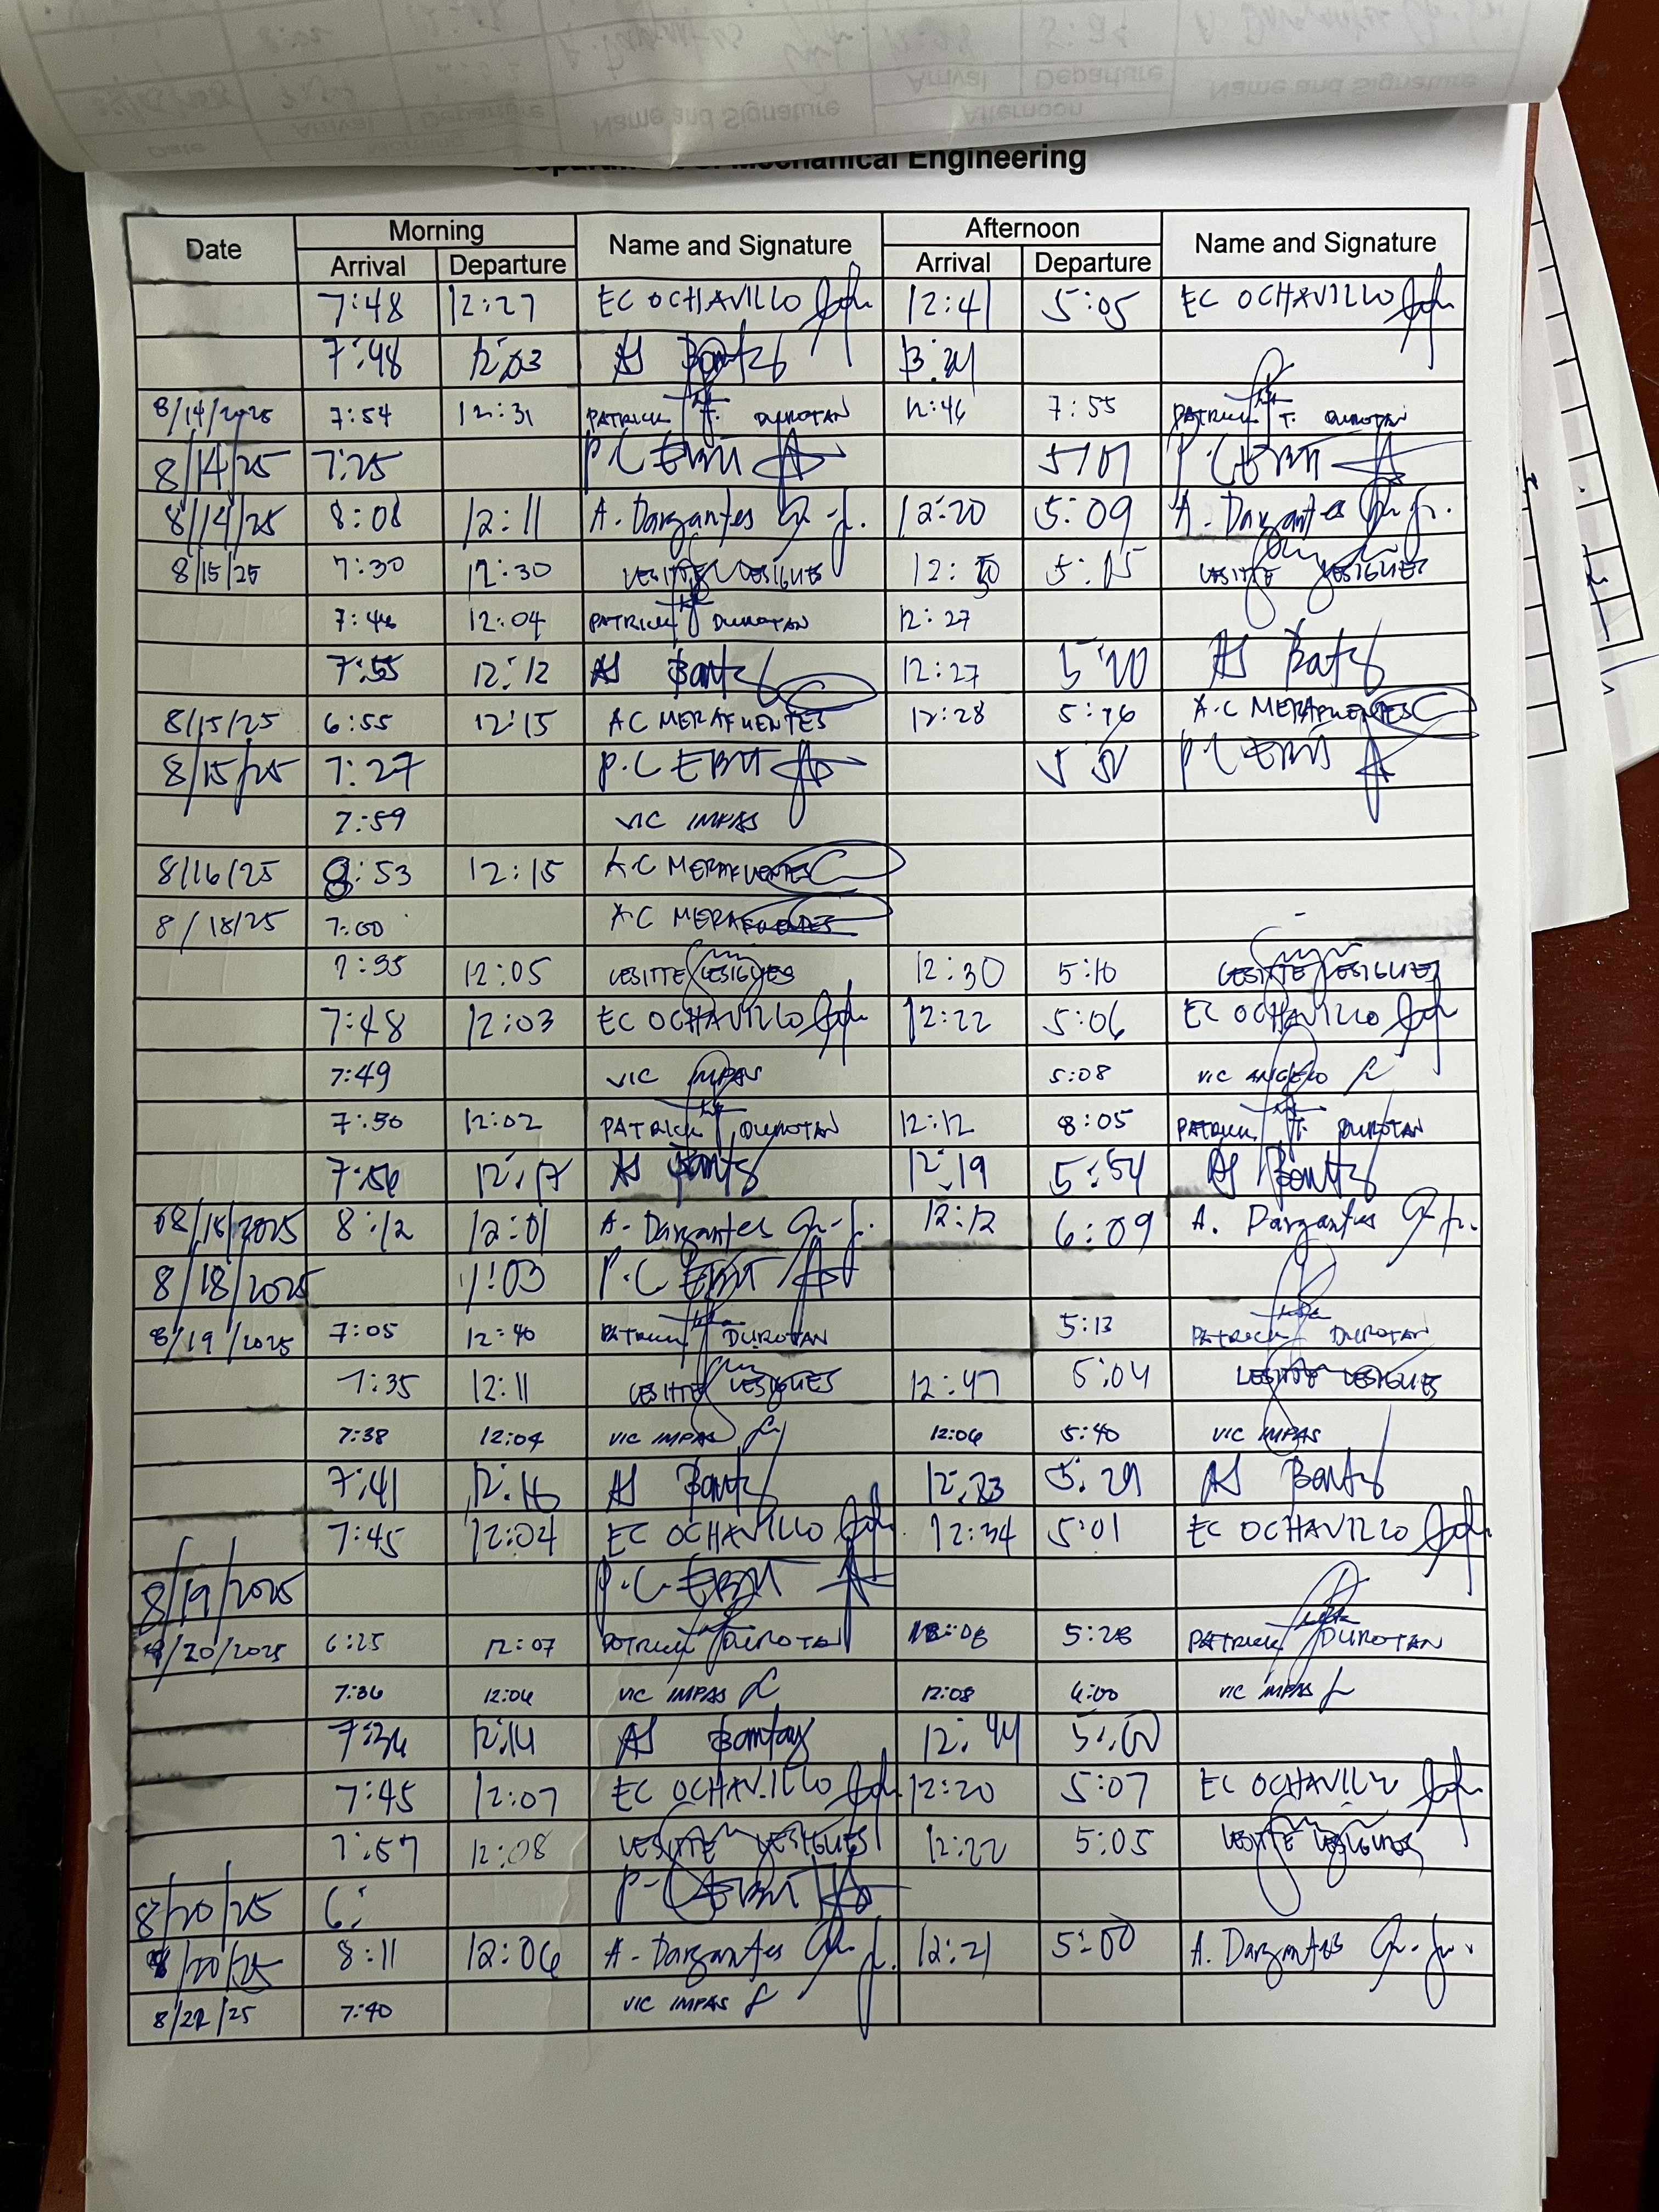 Department of Mechanical Engineering
Date Morning Name and Signature Afternoon Name and Signature
Arrival Departure Arrival Departure
7:48 12:27 EC OCHAVILLO 12:41 5:05 EC OCHAVILLO
7:48 12:03 AS
8/14/2025 7:54 12:31 PATRICK T. DUROTAN 12:46 7:55 PATRICK T. DUROTAN
8/14/25 7:25 P.C EBIT 5:01 P.C EBIT
8/14/25 8:08 12:11 A. Dargantes Jr. 12:20 5:09 A. Dargantes Jr.
8/15/25 7:30 12:30 LESITTE VESIGUES 12: 5:15 LESITTE VESIGUES
7:46 12:04 PATRICK DUROTAN 12:27
7:55 12:12 AS 12:27 5:20 AS
8/15/25 6:55 12:15 AC MERAFUENTES 12:28 5:16 A.C MERAFUENTES
8/15/25 7:27 P.C EBIT P.C EBIT
7:59 VIC IMPAS
8/16/25 8:53 12:15 A.C MERAFUENTES
8/18/25 7:00 A.C MERAFUENTES
7:35 12:05 LESITTE VESIGUES 12:30 5:10 LESITTE VESIGUES
7:48 12:03 EC OCHAVILLO 12:22 5:06 EC OCHAVILLO
7:49 VIC IMPAS 5:08 VIC ANGELO
7:50 12:02 PATRICK DUROTAN 12:12 8:05 PATRICK T. DUROTAN
7:56 12:17 AS 12:19 5:54 AS
08/18/2025 8:12 12:01 A. Dargantes Jr. 12:12 6:09 A. Dargantes Jr.
8/18/2025 1:03 P.C EBIT
8/19/2025 7:05 12:40 PATRICK DUROTAN 5:13 PATRICK DUROTAN
7:35 12:11 LESITTE VESIGUES 12:47 5:04 LESITTE VESIGUES
7:38 12:04 VIC IMPAS 12:06 5:40 VIC IMPAS
7:41 12:16 AS 12:23 5:29 AS
7:45 12:04 EC OCHAVILLO 12:34 5:01 EC OCHAVILLO
8/19/2025 P.C. EBIT
8/20/2025 6:25 12:07 PATRICK DUROTAN 12:08 5:28 PATRICK DUROTAN
7:36 12:06 VIC IMPAS 12:08 6:00 VIC IMPAS
7:36 12:14 AS Bantay 12:44 5:00
7:45 12:07 EC OCHAVILLO 12:20 5:07 EC OCHAVILLO
7:57 12:08 LESITTE VESIGUES 12:22 5:05 LESITTE VESIGUES
8/20/25 6: P.C EBIT
8/20/25 8:11 12:06 A. Dargantes Jr. 12:21 5:00 A. Dargantes Jr.
8/22/25 7:40 VIC IMPAS